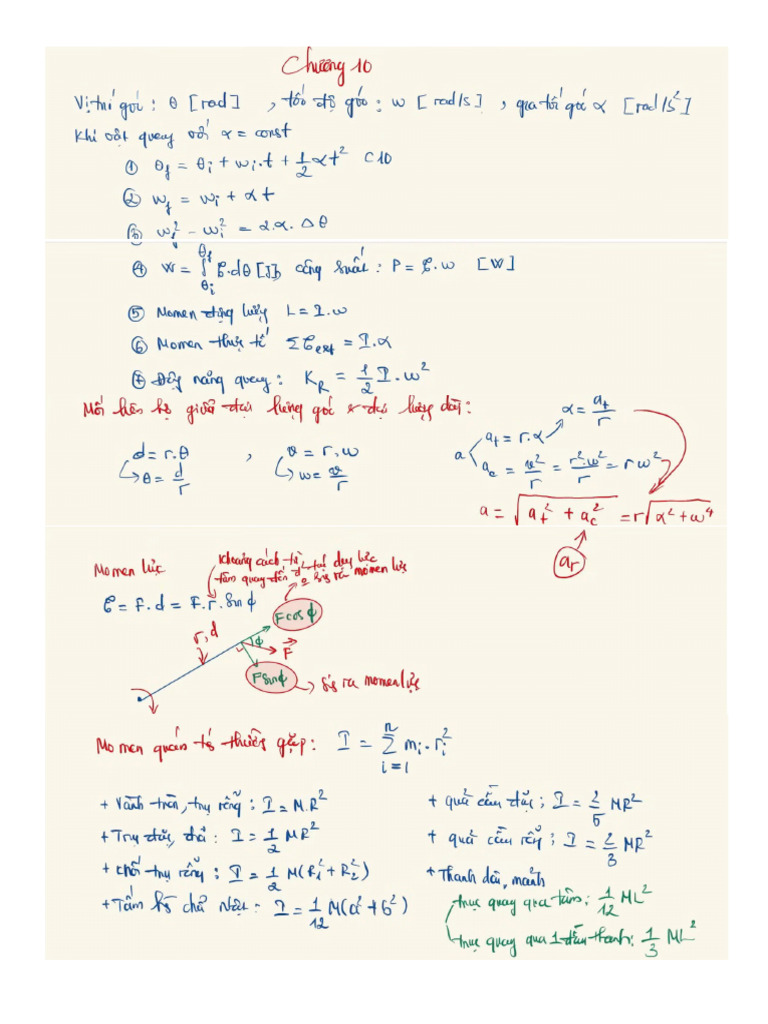 Chương 10
Vị trí góc : θ [rad] , tốc độ góc : w [rad/s] , gia tốc góc α [rad/s²]
Khi vật quay với α = const
① θf = θi + wi.t + 1/2 αt² C10
② wf = wi + αt
③ wf² - wi² = 2.α.Δθ
④ W = ∫θi→θf τ.dθ [J], công suất : P = τ.w [W]
⑤ Momen động lượng L = I.w
⑥ Momen thực tế Στext = I.α
⑦ Động năng quay : KR = 1/2 I.w²
Mối liên hệ giữa đại lượng góc & đại lượng dài :
d = r.θ , v = r.w
θ = d/r w = v/r
α = at/r
a at = r.α
ac = v²/r = r².w²/r = rw²
a = √(at² + ac²) = r√(α² + w⁴)
ar
Momen lực
Khoảng cách từ tâm quay đến
τ = F.d = F.r.sinϕ
Fcosϕ
r,d
ϕ
F
Fsinϕ
momen lực
Momen quán tính thường gặp : I = Σ(i=1→n) mi.ri²
+ Vành tròn, trụ rỗng : I = M.R²
+ Trụ đặc, đĩa : I = 1/2 MR²
+ Khối trụ rỗng : I = 1/2 M(R1² + R2²)
+ Tấm hộ chữ nhật : I = 1/12 M(a² + b²)
+ quả cầu đặc : I = 2/5 MR²
+ quả cầu rỗng : I = 2/3 MR²
+ Thanh dài, mảnh
trục quay qua tâm : 1/12 ML²
trục quay qua 1 đầu thanh : 1/3 ML²